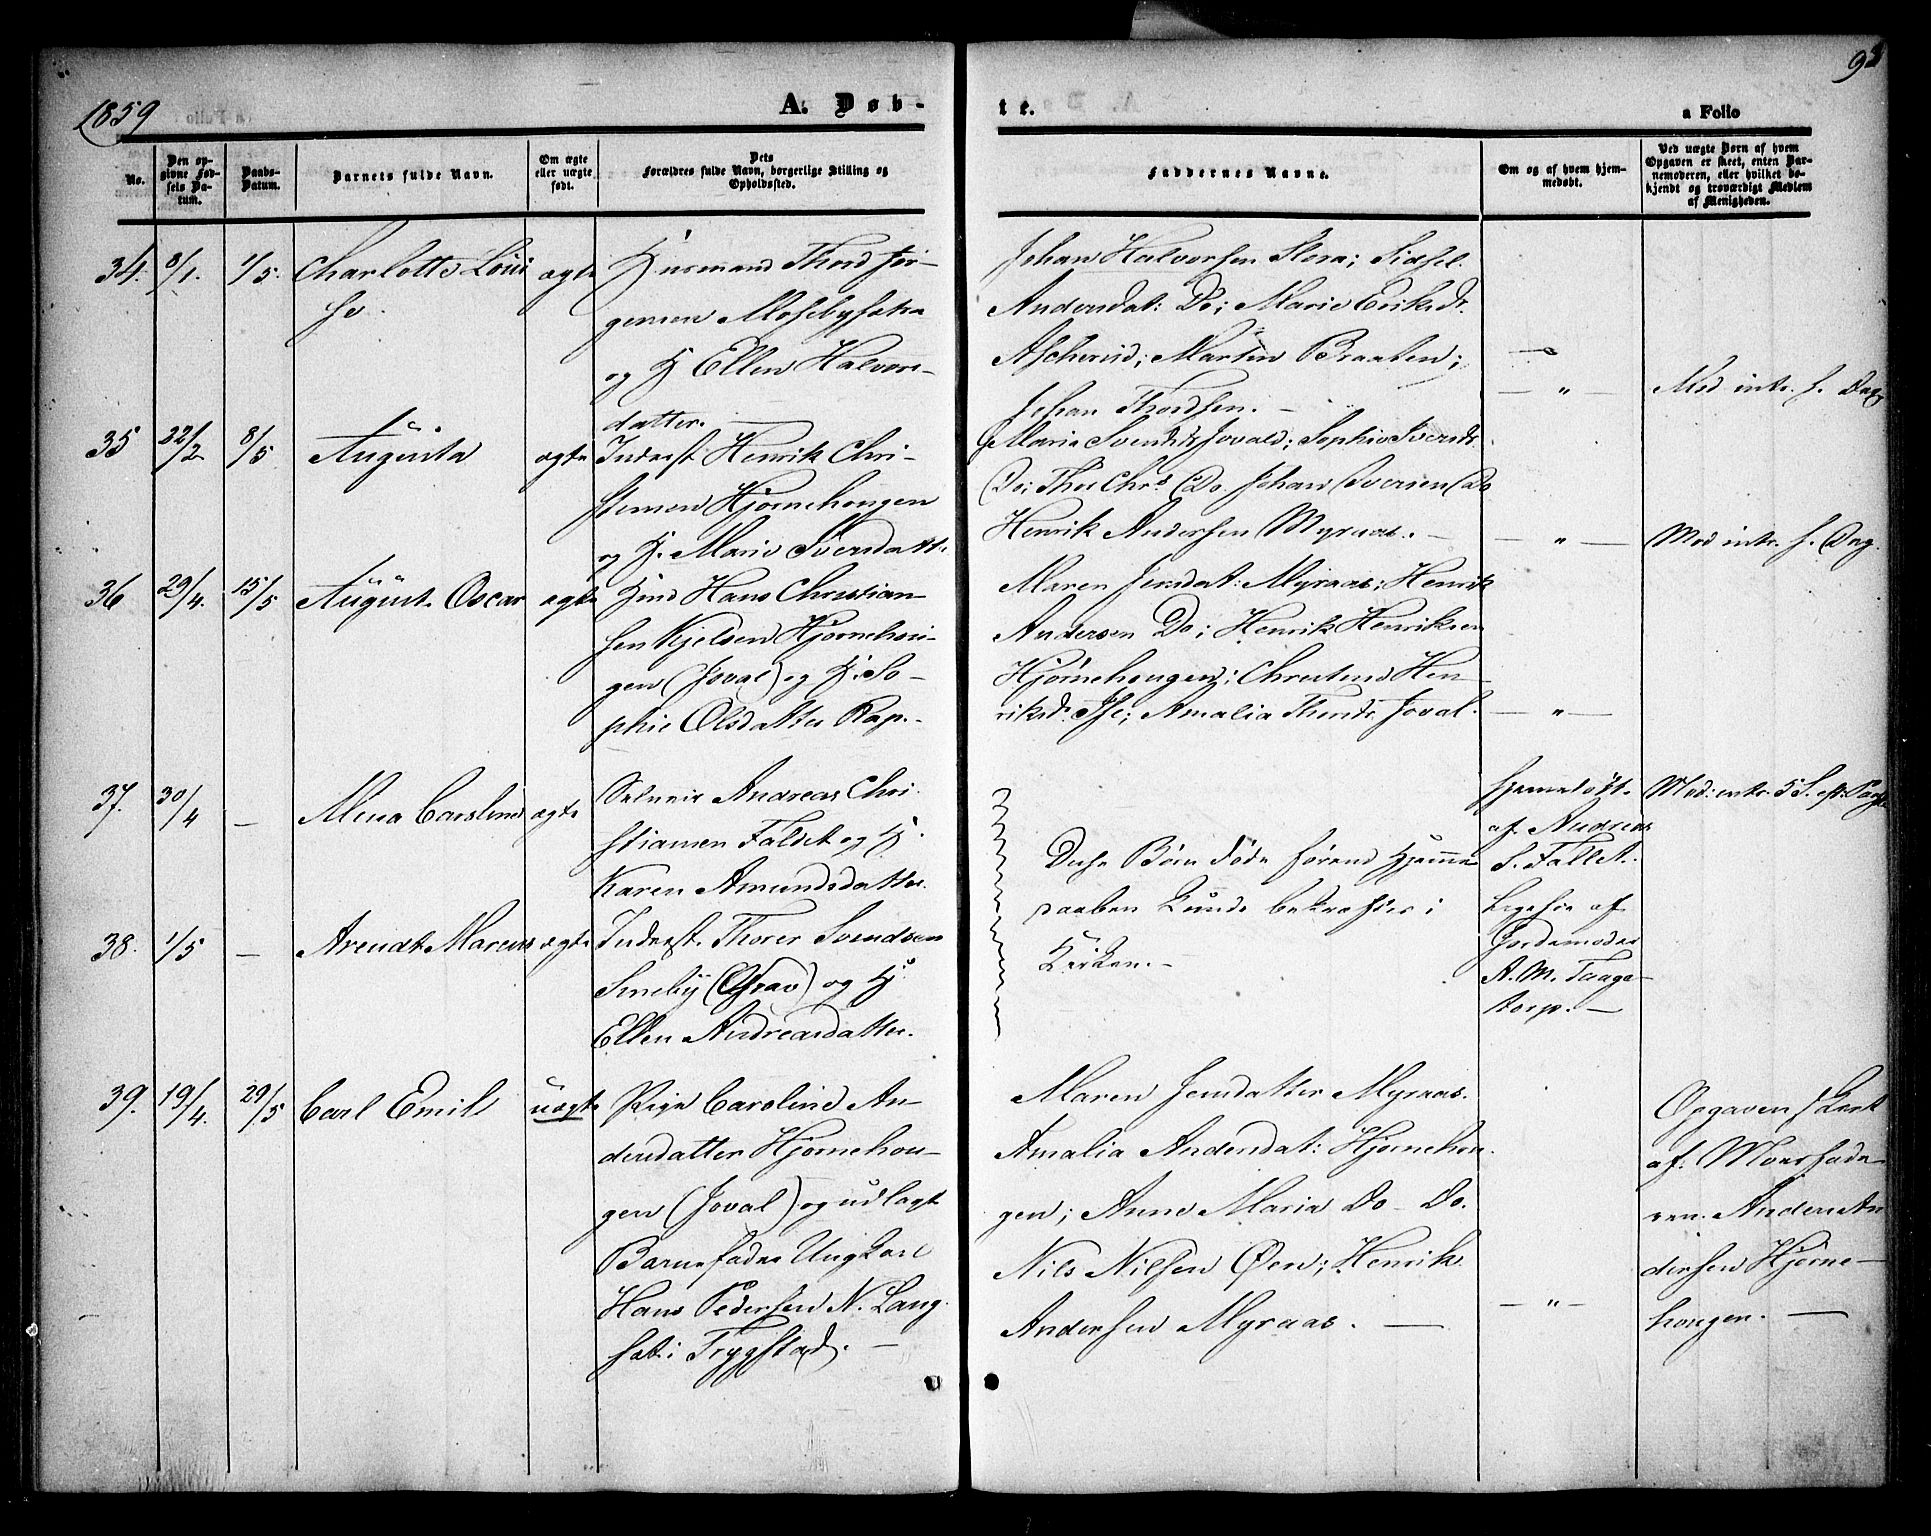 1859
A. Døb-
te.
a Folio
93
No.
Den op-
givne Fød-
sels Da-
tum.
Daabs-
Datum.
Barnets fulde Navn.
Om ægte
eller uægte
født.
Dets
Forældres fulde Navn, borgerlige Stilling og
Opholdssted.
Faddernes Navne.
Om og af hvem hjem-
medøbt.
Ved uægte Børn af hvem
Opgaven er skeet, enten Bar-
nemoderen, eller hvilket be-
kjendt og troværdigt Medlem
af Menigheden.
34. 8/1. 1/5. Charlotte Loui
se.
ægte
Husmand Thord Jør-
gensen Mosebysætra
og H Ellen Halvors-
datter.
Johan Halvorsen Slora; Sidsel
Andersdat: Do; Marie Eriksdr.
Martin Braaten;
Johan Thordsen. —
— " —
Mod intr. s. Dag
35 22/2 8/5 Augusta
ægte
Inderst Henrik Chri-
stensen Hjørnehougen
og H. Marie Svensdatt.
Maria Svendsdr Joval; Sophie Svendsdr
Do; Chrs Do Johan Iversen Do
Henrik Andersen Myraas. —
— " —
Mod intr. s. Dag.
36 29/4. 15/5 August Oscar
ægte
Hans Christian-
sen Kjelsen Hjørnehou-
gen (Joval) og H. So-
phie Olsdatter Rap. -
Maren Jensdat: Myraas; Henrik
Andersen Do; Henrik Henriksen
Hjørnehougen; Christine Hen-
riksdr. Amalia Joval.
— " —
37. 30/4 — Mina Caroline
ægte
Andreas Chri-
stiansen Faldet og H.
Karen Amundsdatter.
Disse Børn døde førend Hjemme
daaben kunde bekræftes i
Kirken. —
Hjemmedøbt
af Andreas
S. Fallet.
Mod: intr. 5 S. eft. Paaske
38. 1/5 — Arendt Marcus
ægte
Inderst. Thorer Svendsen
Smeby (Grav) og H
Ellen Andreasdatter.
Ligesaa af
Gjordemoder
A. M. Taage-
torp. —
39. 19/4. 29/5 Carl Emil
uægte
Pige Caroline An-
dersdatter Hjørnehou-
gen (Joval) og udlagt
Barnefader Ungkarl
Hans Pedersen N. Lang-
sæt i Trygstad. —
Maren Jensdatter Myraas.
Amalia Andersdat: Hjørnehou-
gen; Anne Maria Do - Do.
Nils Nilsen Øren; Henrik
Andersen Myraas. —
— " —
Opgaven skeet
af Moersfade-
ren Anders An
dersen Hjørne-
hougen. —